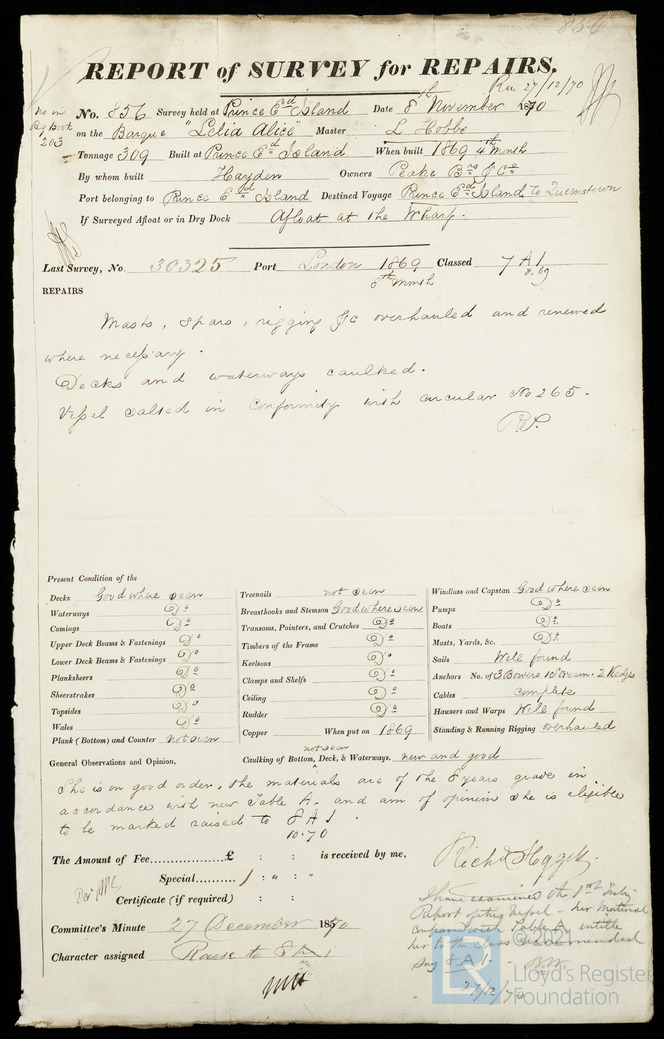 856
REPORT of SURVEY for REPAIRS.
Rec 27/12/70
No in Reg Book 203
No. 856 Survey held at Prince Ed Island Date 8th November 1870
on the Barque "Lelia Alice" Master L Hobbs
Tonnage 309 Built at Prince Ed Island When built 1869 4th Month
By whom built Hayden Owners Peake Bros & Co
Port belonging to Prince Ed Island Destined Voyage Prince Ed Island to Queenstown
If Surveyed Afloat or in Dry Dock Afloat at the Wharf.
Last Survey, No. 30325 Port London 1869 Classed 7 A 1
8th month 8.69
REPAIRS
Masts, Spars, rigging &c overhauled and renewed
where necessary.
Decks and waterways caulked.
Vessel salted in conformity with circular No 265.
Present Condition of the
Decks Good where seen
Waterways Do
Comings Do
Upper Deck Beams & Fastenings Do
Lower Deck Beams & Fastenings Do
Planksheers Do
Sheerstrakes Do
Topsides Do
Wales Do
Plank (Bottom) and Counter not seen
Treenails not seen
Breasthooks and Stemson Good where seen
Transoms, Pointers, and Crutches Do
Timbers of the Frame Do
Keelsons Do
Clamps and Shelfs Do
Ceiling Do
Rudder Do
Copper When put on 1869
not seen
Caulking of Bottom, Deck, & Waterways. new and good
Windlass and Capstan Good where seen
Pumps Do
Boats Do
Masts, Yards, &c. Do
Sails Well found
Anchors No. of 3 Bowers 1 Stream. 2 Kedges
Cables complete
Hawsers and Warps Well found
Standing & Running Rigging overhauled
General Observations and Opinion,
She is in good order, the materials are of the 8 years grade in
accordance with new Table A. and am of opinion she is eligible
to be marked raised to 8 A 1.
10.70
The Amount of Fee £ : : is received by me,
Special 1 : " : "
Certificate (if required) : :
Committee's Minute 27 December 1870
Character assigned Raise to 8 A 1
I have examined the 1st Entry
Report of this Vessel - her Material
compared with Table A entitle
her to the class recommended
say 8 A 1 -
27/12/70
© 2021
LR
Lloyd's Register
Foundation